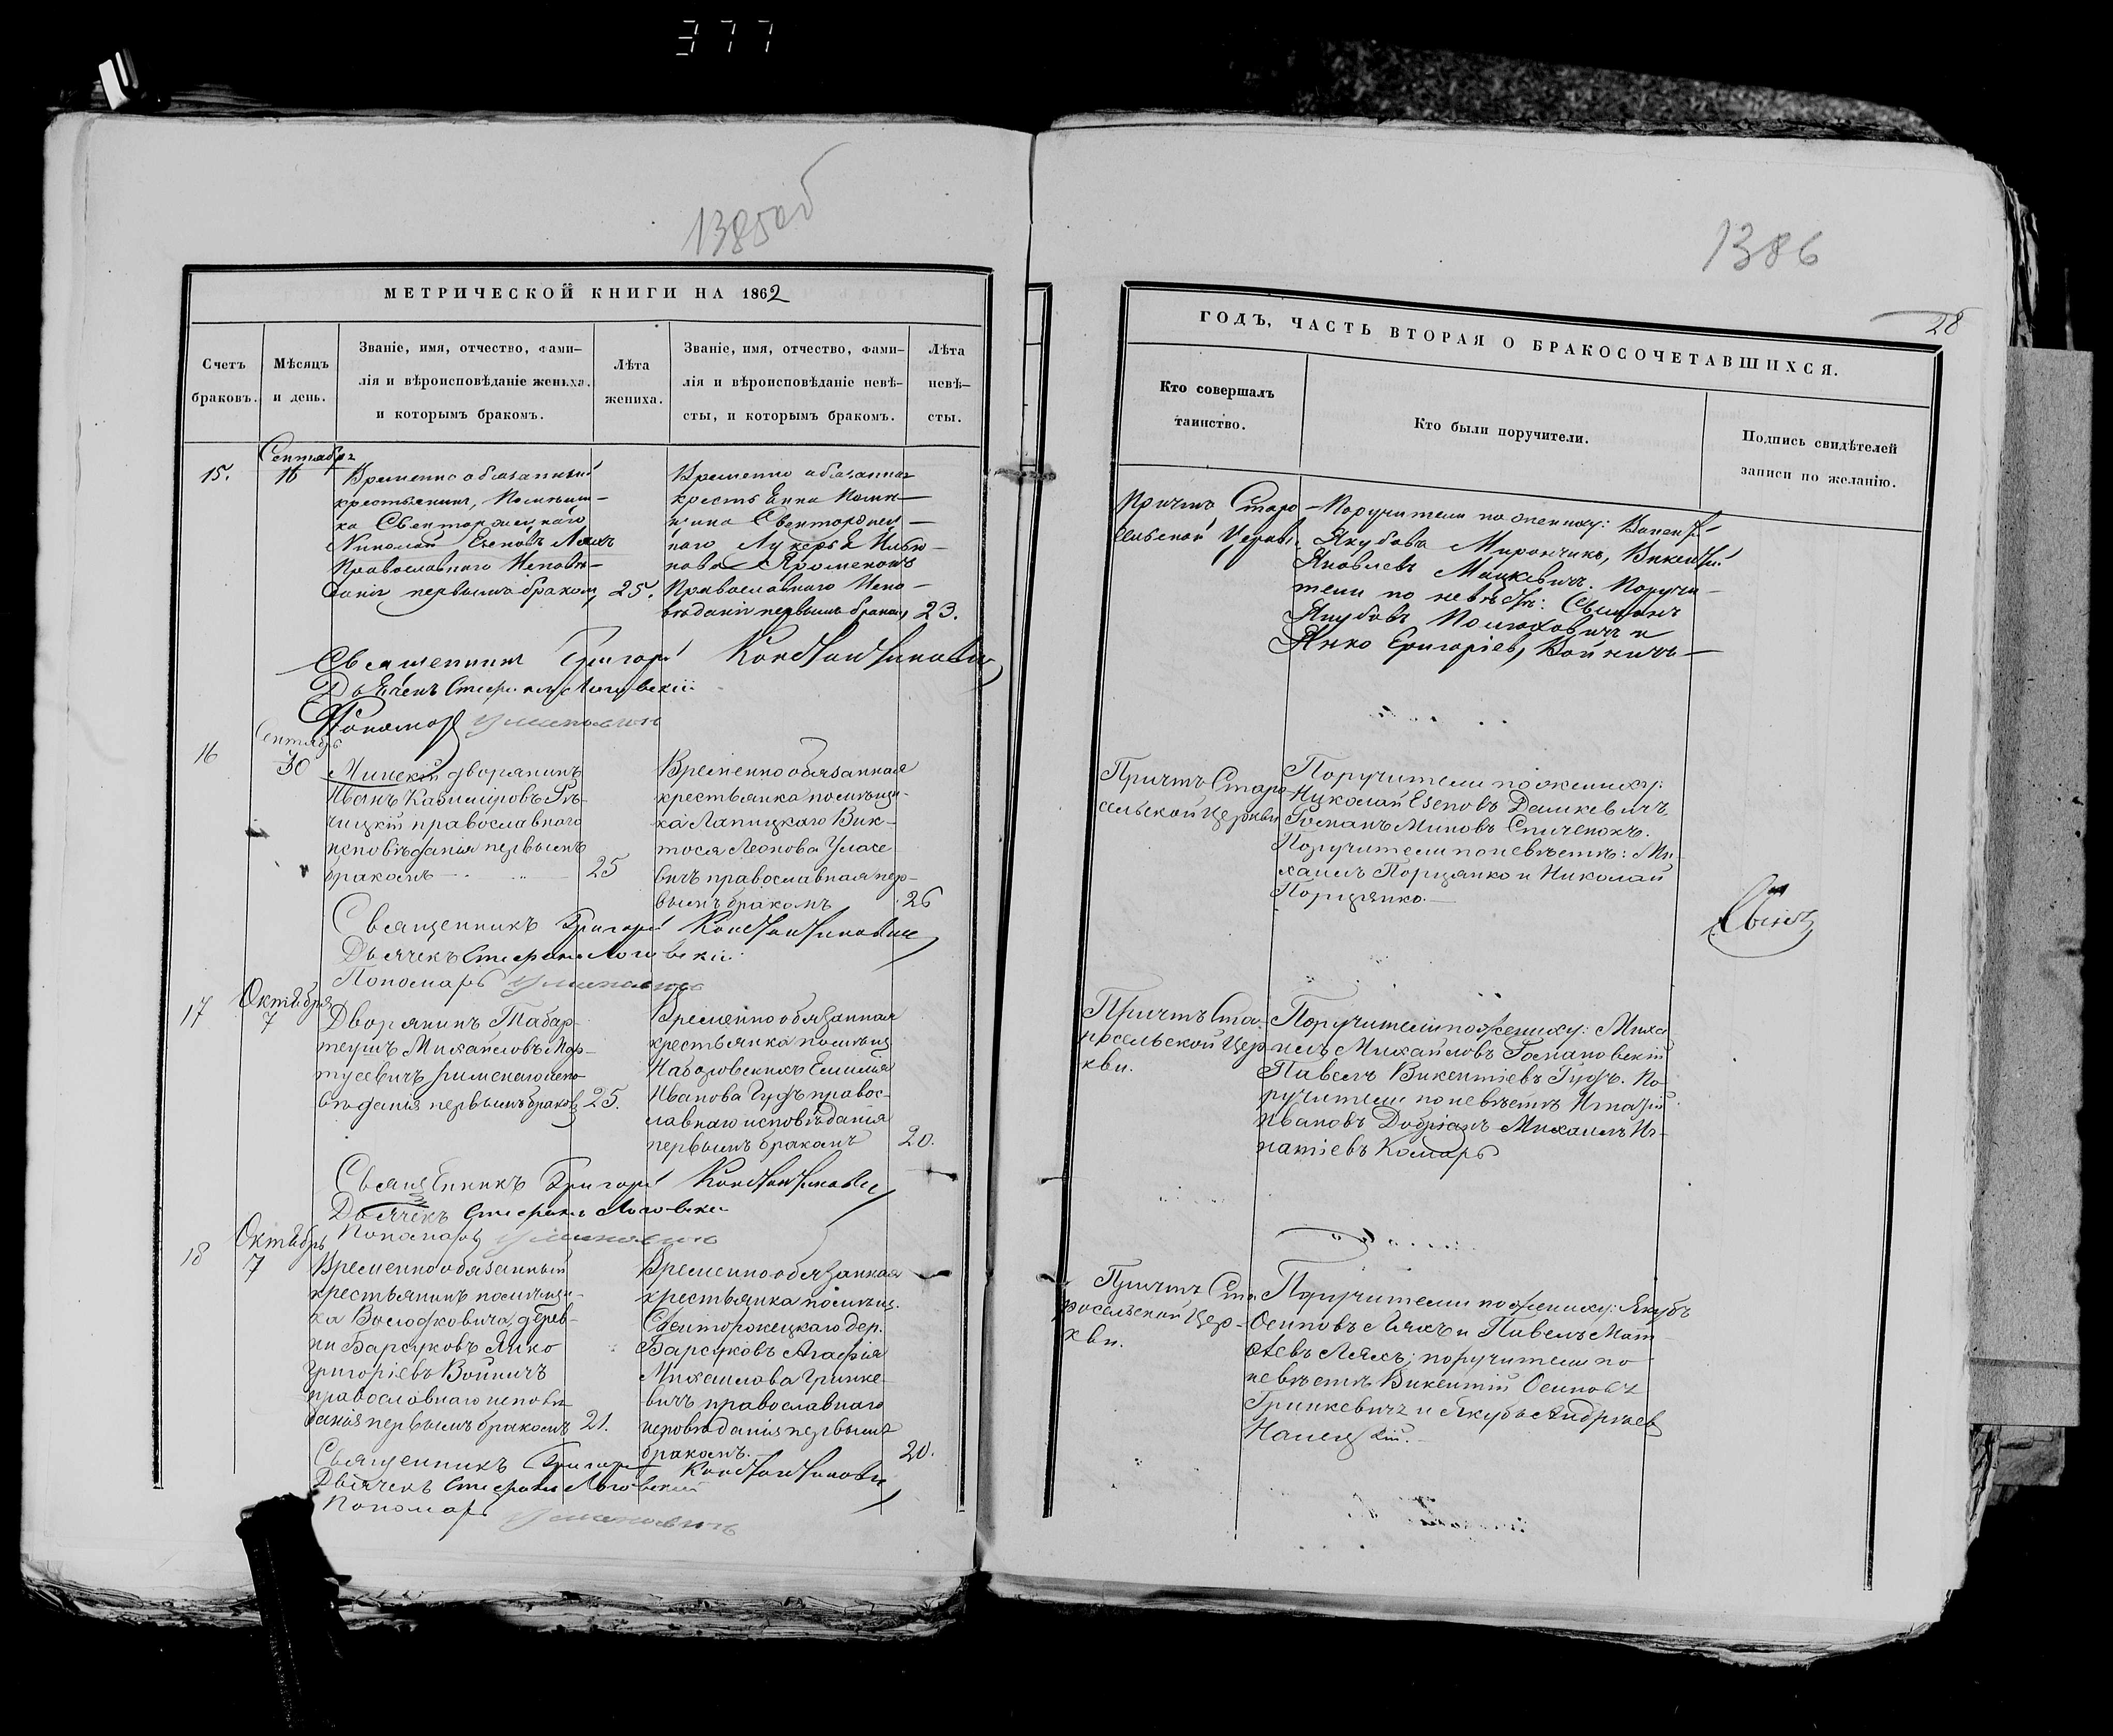 377
1385об
МЕТРИЧЕСКОЙ КНИГИ НА 1862
Счетъ браковъ.
Мѣсяцъ и день.
Званіе, имя, отчество, фами-
лія и вѣроисповѣданіе жениха.
и которымъ бракомъ.
Лѣта жениха.
Званіе, имя, отчество, фами-
лія и вѣроисповѣданіе невѣ-
сты, и которымъ бракомъ.
Лѣта невѣ-
сты.
15.
Сентября
16
Временно обязанный
крестьянинъ, помѣщи-
ка Свенторжецкаго
Николай Езеповъ Ляхъ
Православнаго Исповѣ-
данія первымъ бракомъ
25.
Временно обязанная
крестьянка помѣ-
щика Свенторжец-
каго Лукерья
Православнаго Испо-
вѣданія первымъ бракомъ
23.
Священникъ Григорій Константиновичъ
Дьячекъ Стефанъ
Пономарь
16
Сентябрь
30
Минскій дворянинъ
Иванъ Казиміровъ Рѣ-
чицкій православнаго
исповѣданія первымъ
бракомъ
25
Временно обязанная
крестьянка помѣщи-
ка Лапицкаго Вик-
тося Леонова Уласе
вичъ православная пер-
вымъ бракомъ
26
Священникъ Григорій Константиновичъ
Дьячекъ Стефанъ
Пономарь
17
Октября
7
Дворянинъ
Михайловъ Мар-
тусевичъ римскаго испо
вѣданія первымъ бракомъ
25.
Временно обязанная
крестьянка помѣщ
Емилія
Иванова Гудъ правос-
лавнаго исповѣданія
первымъ бракомъ
20.
Священникъ Григорій Константиновичъ
Дьячекъ Стефанъ
Пономарь
18
Октябрь
7
Временно обязанный
крестьянинъ помѣщи-
ка Володковича, дерев-
ни Барсуковъ Янко
Григоріевъ Войничъ
православнаго исповѣ
данія первымъ бракомъ
21.
Временно обязанная
крестьянка помѣщ.
Свенторжецкаго дер.
Барсуковъ Агафія
Михаилова Гринке-
вичъ православнаго
исповѣданія первымъ
бракомъ.
20.
Священникъ Григорій Константиновичъ
Дьячекъ Стефанъ
Пономарь
1386
28
ГОДЪ, ЧАСТЬ ВТОРАЯ О БРАКОСОЧЕТАВШИХСЯ.
Кто совершалъ
таинство.
Кто были поручители.
Подпись свидѣтелей
записи по желанію.
Причтъ Старо-
сельской Церкви
Поручители по жениху:
Якубовъ Мирончикъ, Викентій
Яковлевъ Мацкевичъ. Поручи-
тели по невѣстѣ:
Якубовъ и
Янко Григоріевъ Войничъ
Причтъ Старо
сельской Церкви
Поручители по жениху:
Николай Езеповъ Дашкевичъ,
Романъ Миновъ Спиченокъ.
Поручители по невѣстѣ: Ми-
хаилъ Порцянко и Николай
Порцянко.
Причтъ Ста-
росельской Цер-
кви.
Поручители по жениху: Миха
илъ Михайловъ Романовскій
Павелъ Викентіевъ Гудъ. По-
ручители по невѣстѣ Игнатій
Ивановъ Михаилъ Иг-
натіевъ Комаръ
Причтъ Ста
росельской Цер-
кви.
Поручители по жениху: Якубъ
Осиповъ Ляхъ и Павелъ Мат-
ѳеевъ Ляхъ; поручители по
невѣстѣ Викентій Осиповъ
Гринкевичъ и Якубъ Андреевъ